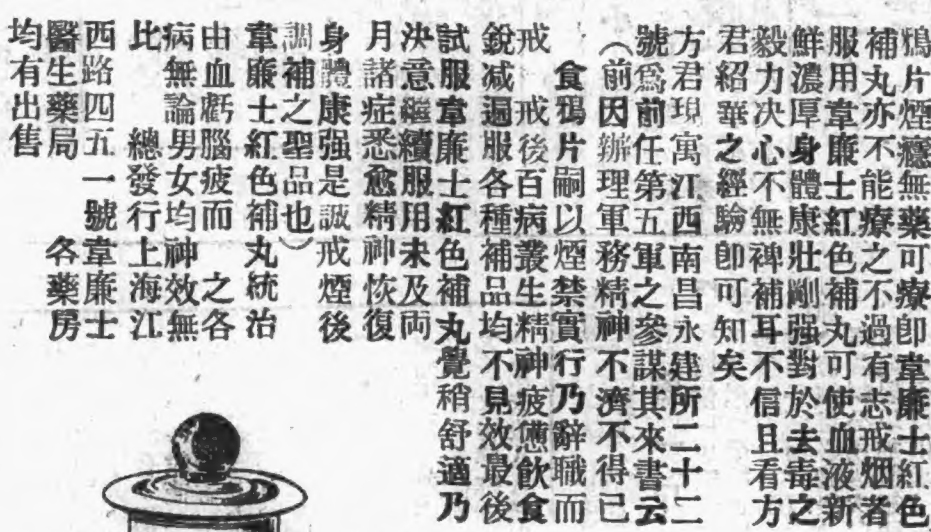 鴉片煙癮無藥可療卽韋廉士紅色
補丸亦不能療之不過有志戒烟者
服用韋廉士紅色補丸可使血液新
鮮濃厚身體康壯剛强對於去毒之
毅力決心不無裨補耳不信且看方
君紹華之經驗卽可知矣
方君現寓江西南昌永建所二十二
號爲前任第五軍之參謀其來書云
（前因辦理軍務精神不濟不得已
食鴉片嗣以煙禁實行乃辭職而
戒 戒後百病叢生精神疲憊飲食
銳减遍服各種補品均不見效最後
試服韋廉士紅色補丸覺稍舒適乃
決意繼續服用未及両
月諸症悉愈精神恢復
身體康强是誠戒煙後
調補之聖品也）
韋廉士紅色補丸統治
由血虧腦疲而 之各
病無論男女均神效無
比 總發行上海江
西路四五一號韋廉士
醫生藥局 各藥房
均有出售